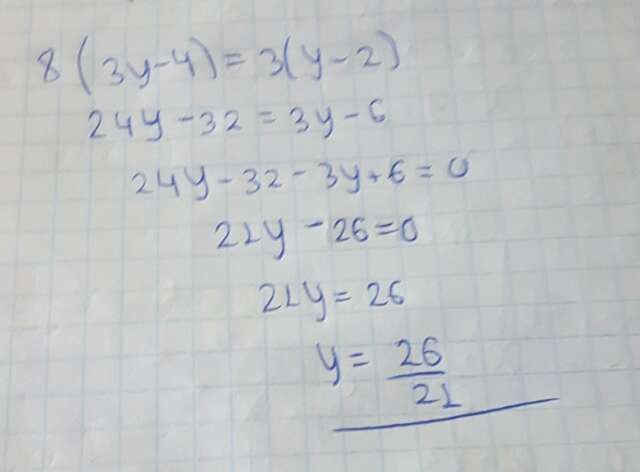 8(3y-4)=3(y-2)
24y-32=3y-6
24y-32-3y+6=0
21y-26=0
21y=26
y=26/21